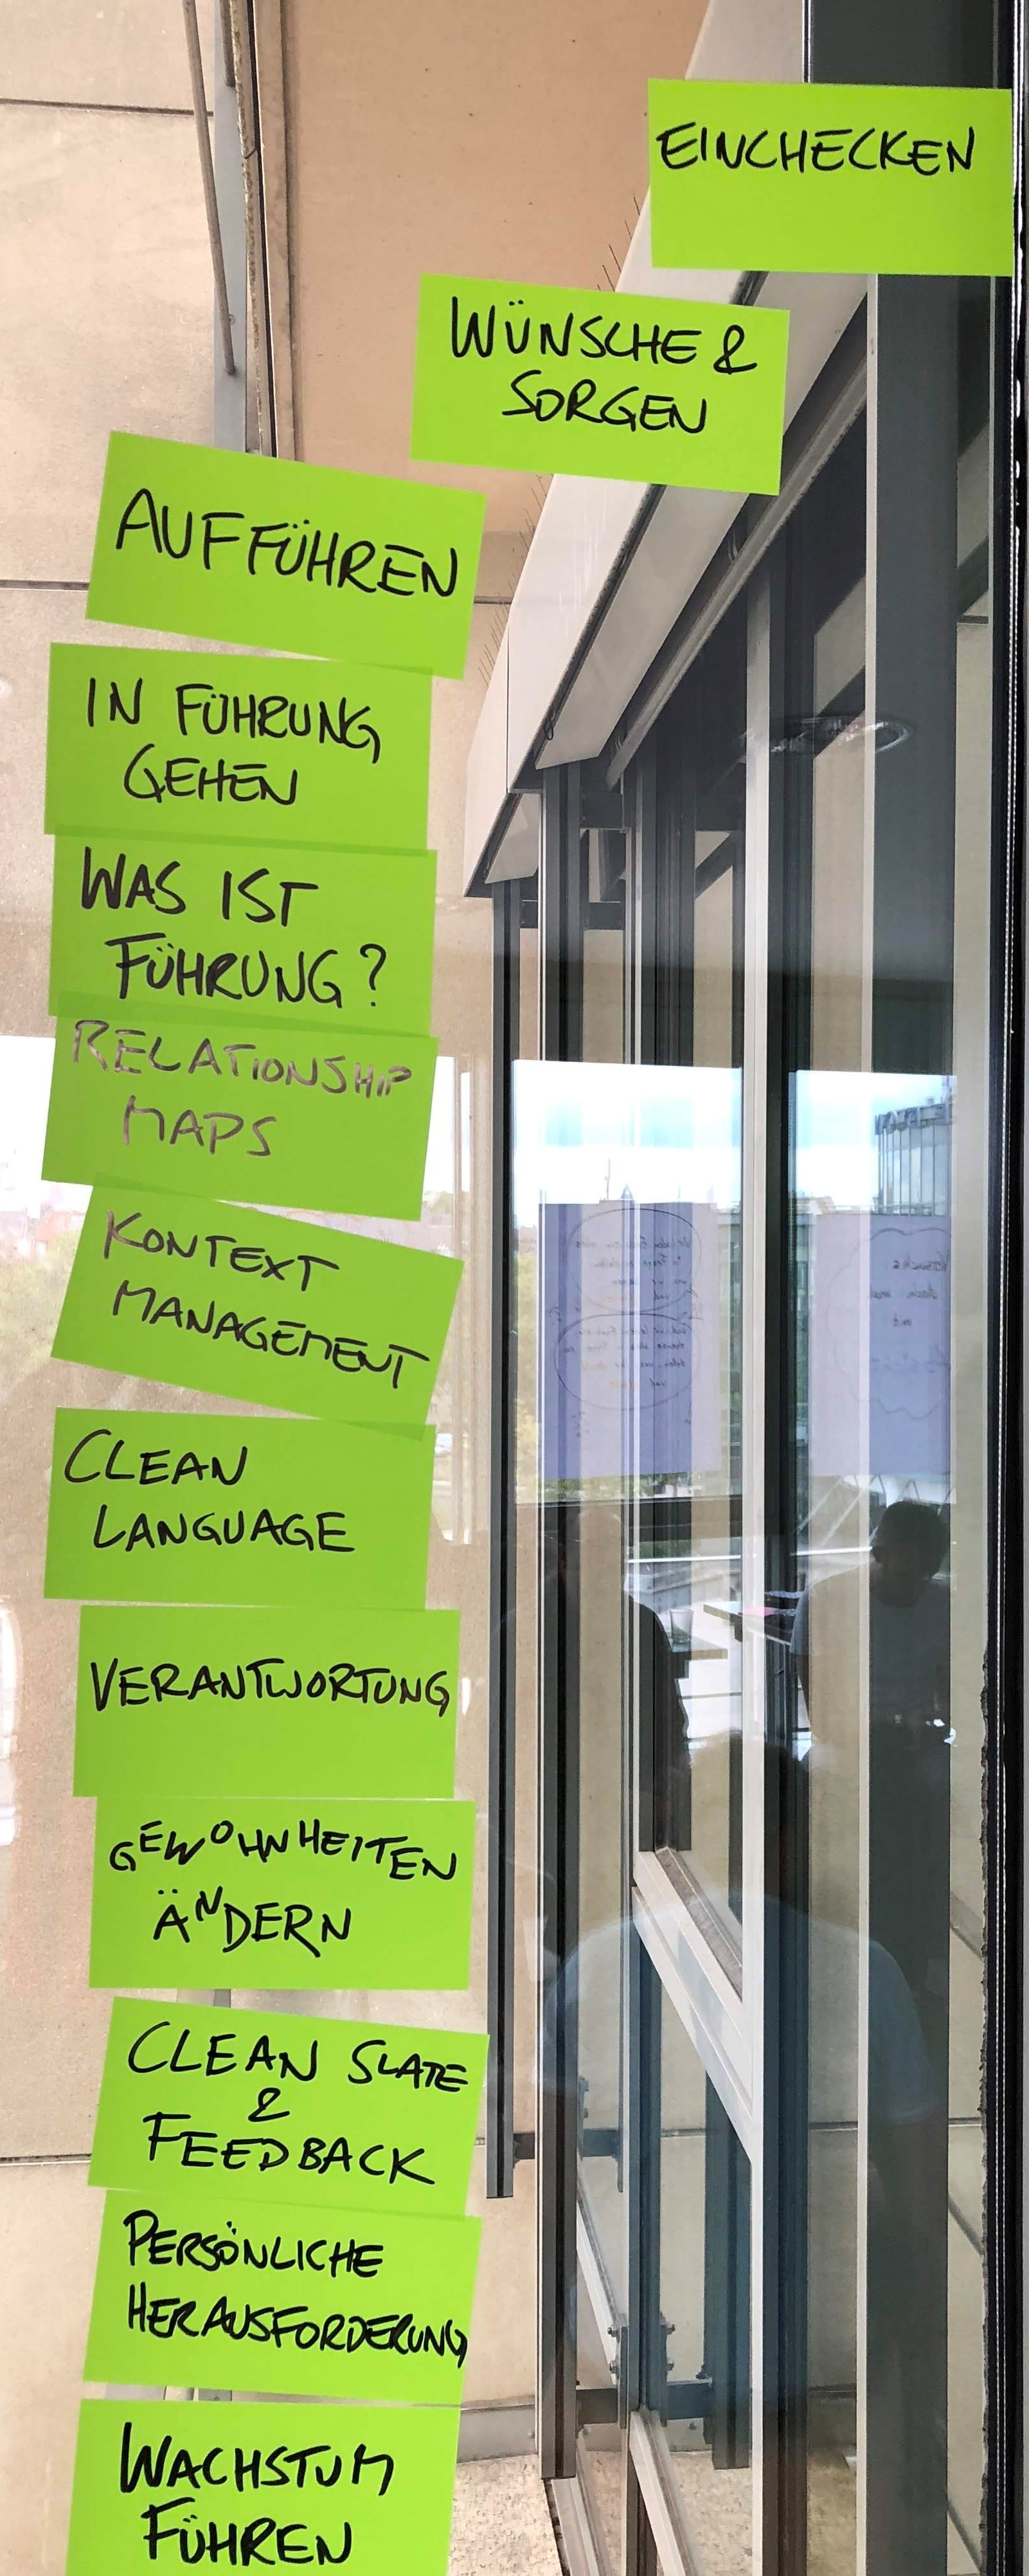 EINCHECKEN
WÜNSCHE &
SORGEN
AUFFÜHREN
IN FÜHRUNG
GEHEN
WAS IST
FÜHRUNG?
RELATIONSHIP
MAPS
KONTEXT
MANAGEMENT
CLEAN
LANGUAGE
VERANTWORTUNG
GEWOHNHEITEN
ÄNDERN
CLEAN SLATE
&
FEEDBACK
PERSÖNLICHE
HERAUSFORDERUNG
WACHSTUM
FÜHREN